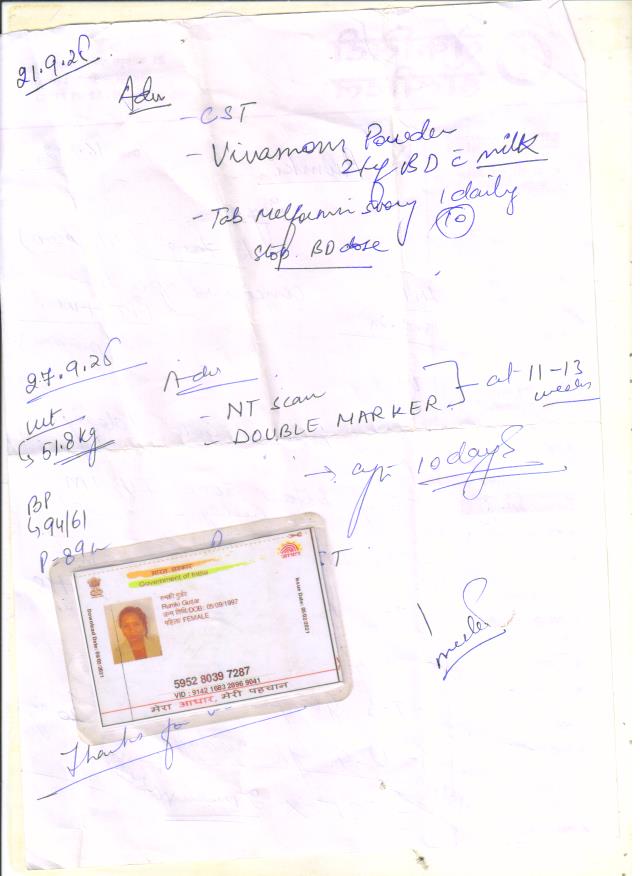 21.9.25
Adv
- CST
- Vivamom Powder
2tsf BD c̄ milk
- Tab Metformin 500mg 1 daily
10
Stop BD dose
27.9.25
Adv
wt.
↳ 51.8 kg
- NT scan
- DOUBLE MARKER
at 11-13 weeks
→ after 10 days
BP
↳ 94/61
P = 89
भारत सरकार
Government of India
Download Date:
Issue Date:
Rumki Gujjar
जन्म तिथि/DOB: 05/09/1997
महिला/ FEMALE
5952 8039 7287
VID : 9142 1683 2896 9041
मेरा आधार, मेरी पहचान
Thanks for